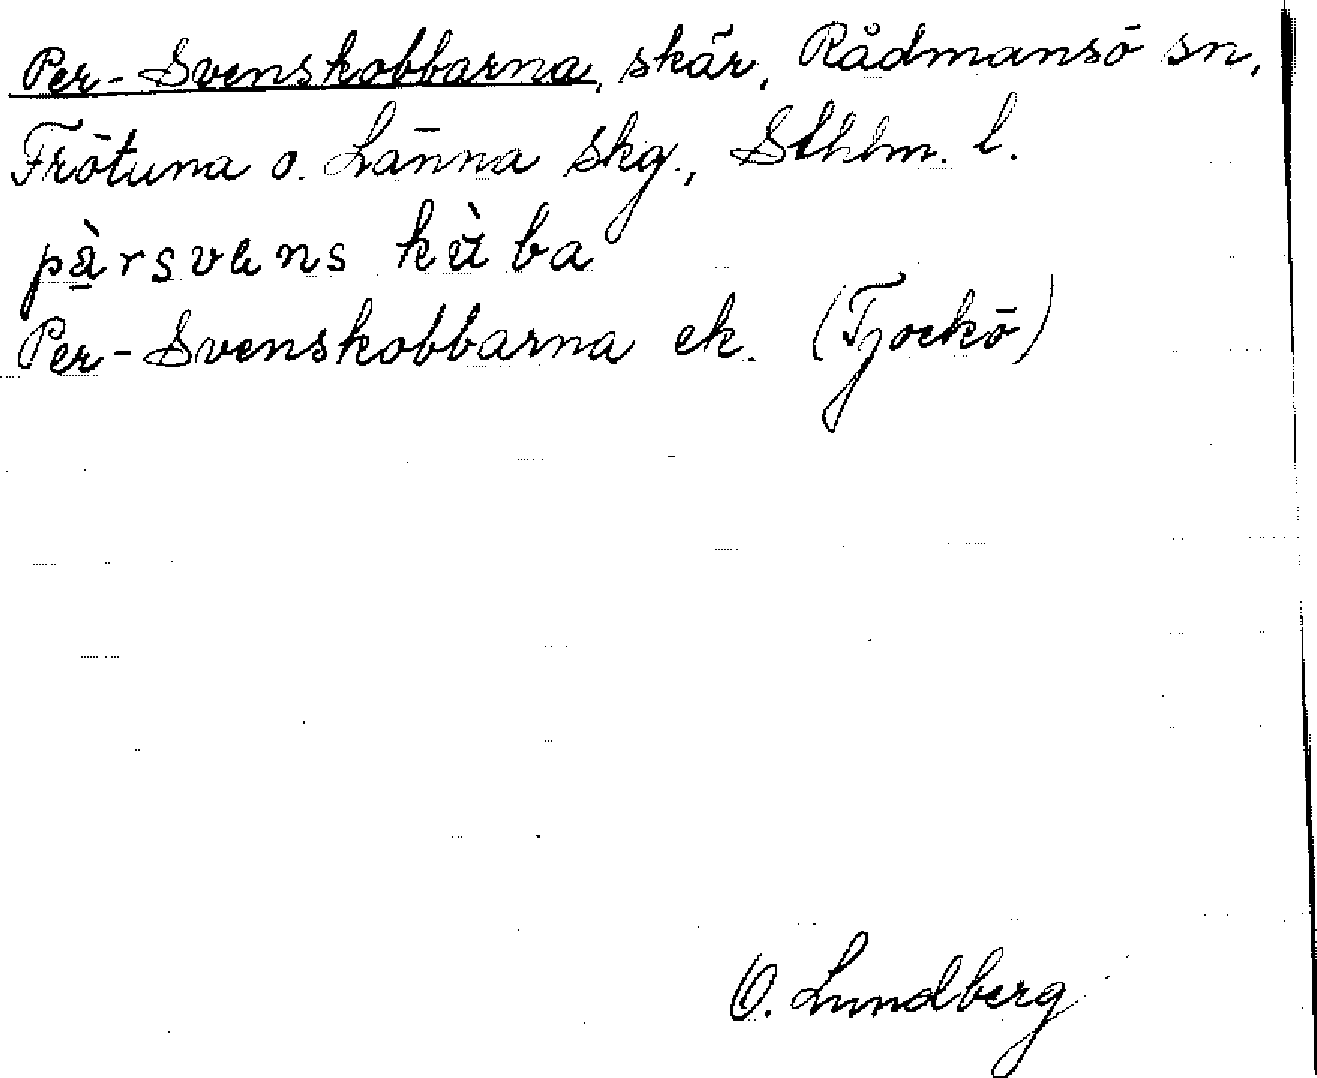 Per-Svenskobbarna, skär, Rådmansö sn,
Frötuna o. Länna skg., Sthlm. l.
pàrsvens kùba
Per-Svenskobbarna ek. (Tjockö)
O. Lundberg